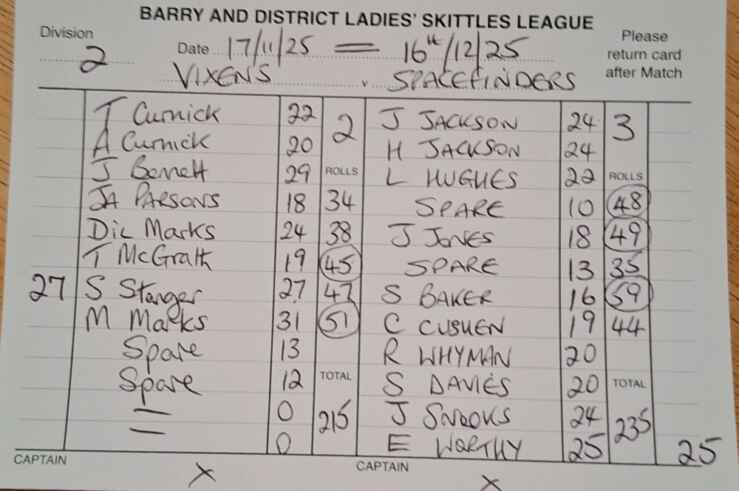 BARRY AND DISTRICT LADIES' SKITTLES LEAGUE
Division 2 Date 17/11/25 = 16th/12/25 Please return card after Match
VIXENS v SPACEFINDERS
T Curnick 22 2 J JACKSON 24 3
A Curnick 20 H JACKSON 24
J Bennett 29 ROLLS L HUGHES 22 ROLLS
JA PARSONS 18 34 SPARE 10 48
Dil Marks 24 38 J JONES 18 49
T McGrath 19 45 SPARE 13 35
27 S Stanger 27 47 S BAKER 16 59
M Marks 31 51 C CUSHEN 19 44
Spare 13 R WHYMAN 20
Spare 12 TOTAL S DAVIES 20 TOTAL
— 0 215 J SNOOKS 24 235
— 0 E WORTHY 25 25
CAPTAIN X CAPTAIN X